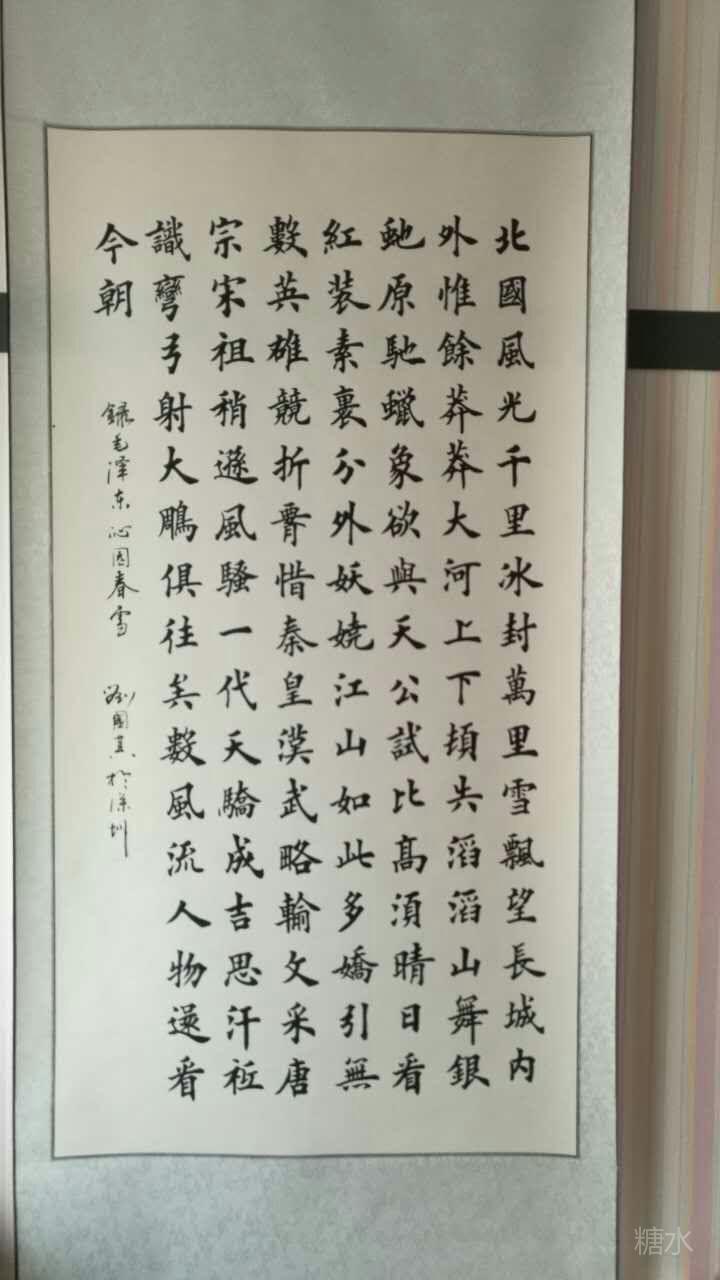 北國風光千里冰封萬里雪飄望長城内
外惟餘莽莽大河上下頓失滔滔山舞銀
虵原馳蠟象欲與天公試比髙須晴日看
紅装素裹分外妖娆江山如此多嬌引無
數英雄競折腰惜秦皇漢武略輸文采唐
宗宋祖稍遜風騷一代天驕成吉思汗祗
識彎弓射大鵰俱往矣數風流人物還看
今朝
録毛泽东沁园春雪 劉國於深圳
糖水